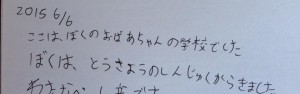 2015 6/6
ここは、ぼくのおばあちゃんの学校でした
ぼくは、とうきょうのしんじゅくからきました